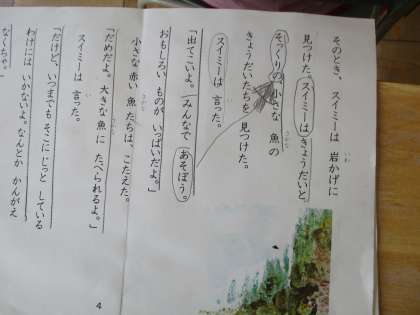 そのとき、スイミーは 岩かげに
見つけた。スイミーは きょうだいと
そっくりの 小さな 魚の
きょうだいたちを 見つけた。
スイミーは 言った。
「出てこいよ。みんなで あそぼう。
おもしろい ものが いっぱいだよ。」
小さな 赤い 魚たちは、こたえた。
「だめだよ。大きな 魚に たべられるよ。」
スイミーは 言った。
「だけど、いつまでも そこに じっと している
わけには いかないよ。なんとか かんがえ
なくちゃ。」
4